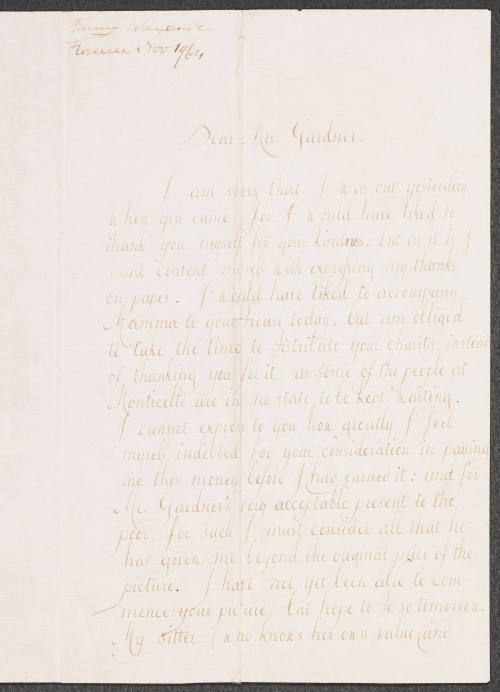 Fanny Alexander
Florence Nov. 1864
Dear Mrs. Gardner.
I am sorry that I was out yesterday
when you came, for I would have liked to
thank you myself for your kindness; but as it is I
must content myself with expressing my thanks
on paper. I would have liked to accompany
Mamma to your house today, but am obliged
to take the time to distribute your charity, instead
of thanking you for it, as some of the people at
Monticelli are in no state to be kept waiting.
I cannot express to you how greatly I feel
myself indebted for your consideration in paying
me this money before I had earned it: and for
Mr. Gardner's very acceptable present to the
poor, for such I must consider all that he
has given me beyond the original price of the
picture. I have not yet been able to com-
mence your picture, but hope to do so tomorrow.
My sitter (who knows her own value, and